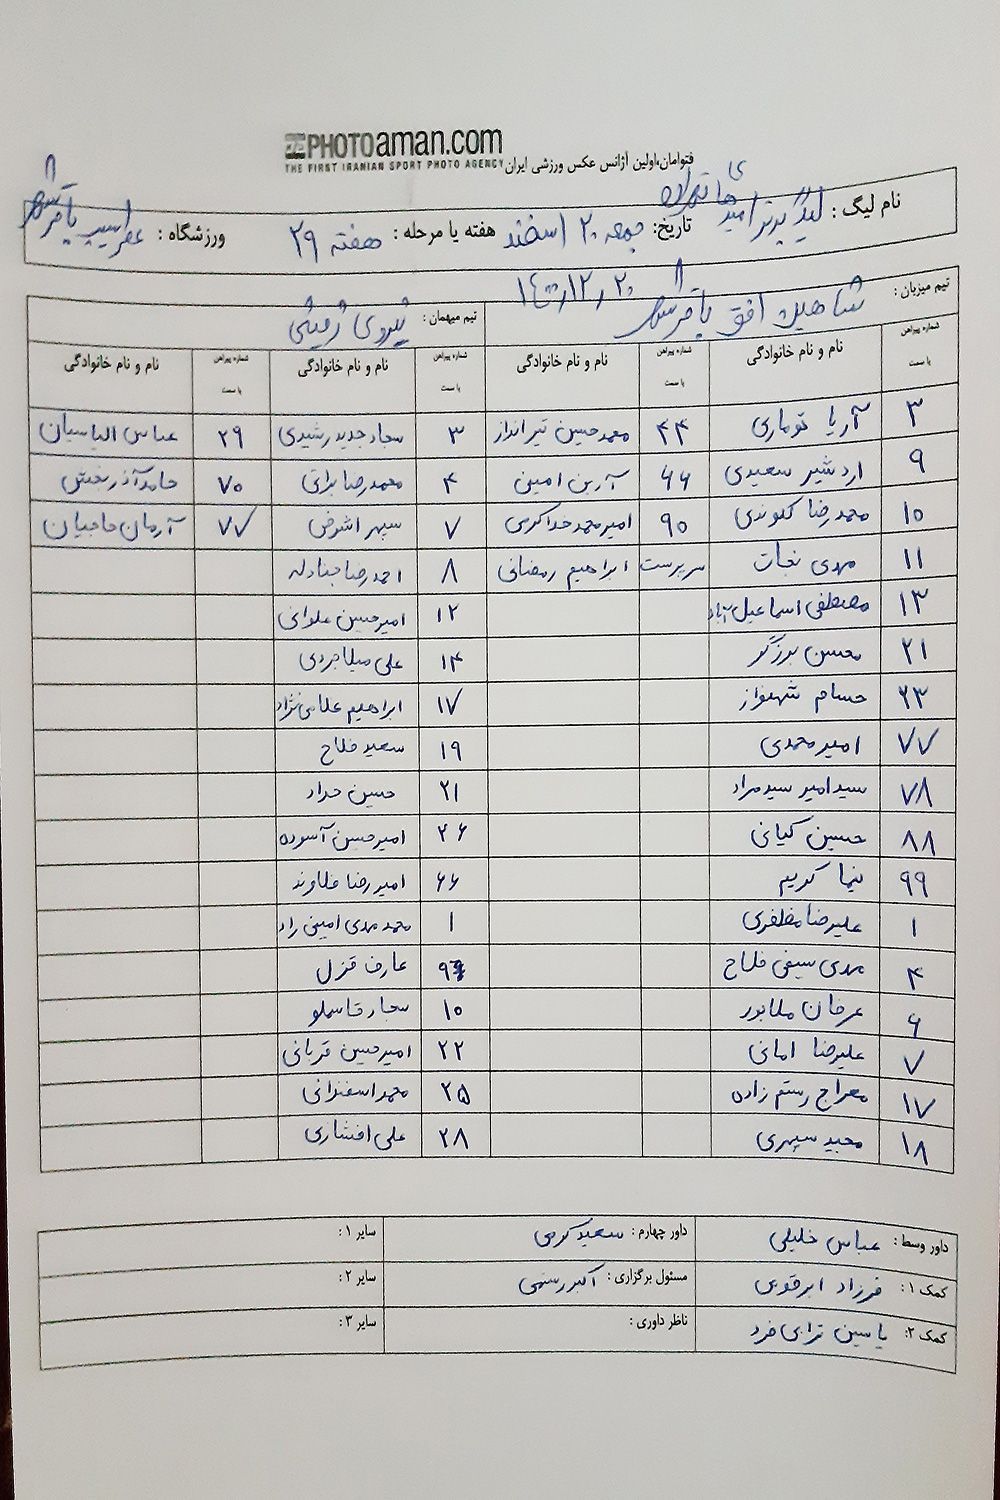 PHOTOaman.com
THE FIRST IRANIAN SPORT PHOTO AGENCY
فتوامان،اولین آژانس عکس ورزشی ایران
نام لیگ : لیگ برتر امیدهای تهران
تاریخ: جمعه ۲۰ اسفند هفته یا مرحله : هفته ۲۹ ورزشگاه : باقرشهر
۱۴۰۰/۱۲/۲۰
تیم میزبان: شاهین افق باقرشهر تیم میهمان: نیروی زمینی
شماره پیراهن یا سمت نام و نام خانوادگی شماره پیراهن یا سمت نام و نام خانوادگی شماره پیراهن یا سمت نام و نام خانوادگی شماره پیراهن یا سمت نام و نام خانوادگی
۳ آریا توماری ۴۴ محمدحسین تیرانداز ۳ سجاد جدیدرشیدی ۲۹ عباس الیاسیان
۹ اردشیر سعیدی ۶۶ آرین امینی ۴ محمدرضا براتی ۷۰ حامد آذربخش
۱۰ محمدرضا کلوندی ۹۰ امیرمحمد خداکرمی ۷ سپهر اشرفی ۷۷ آرمان حاجیان
۱۱ مهدی نجات سرپرست ابراهیم رمضانی ۸ احمدرضا جنادله
۱۳ مصطفی اسماعیل آباد ۱۲ امیرحسین علوانی
۲۱ محسن برزگر ۱۴ علی میلاجردی
۲۳ حسام شهنواز ۱۷ ابراهیم غلامی نژاد
۷۷ امیر محمدی ۱۹ سعید فلاح
۷۸ سید امیر سیدمراد ۲۱ حسین حداد
۸۸ حسین کیانی ۲۶ امیرحسین آسوده
۹۹ نیما کریم ۶۶ امیررضا فلاوند
۱ علیرضا مظفری ۱ محمدمهدی امینی راد
۴ مهدی سیفی فلاح عارف قزل
۶ عرفان ملاپور ۱۰ سجاد قاسملو
۷ علیرضا امانی ۲۲ امیرحسین قربانی
۱۷ معراج رستم زاده ۲۵ محمد اسفندانی
۱۸ مجید سپهری ۲۸ علی افشاری
داور وسط : عباس خلیلی داور چهارم : سعید کرمی سایر ۱:
کمک ۱: فرزاد ابرقویی مسئول برگزاری : اکبر رستمی سایر ۲:
کمک ۲: یاسین ترابی فرد ناظر داوری : سایر ۳: